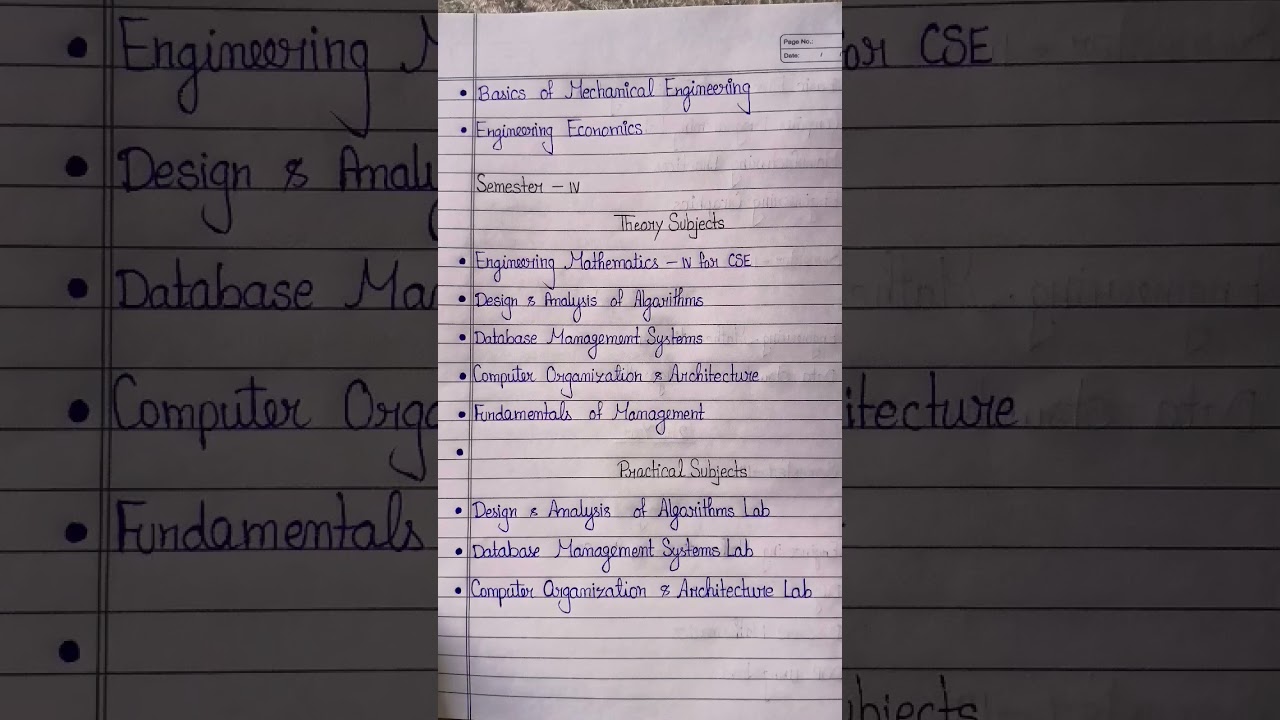 Page No.:
Date: /
• Basics of Mechanical Engineering
• Engineering Economics
Semester - IV
Theory Subjects
• Engineering Mathematics - IV for CSE
• Design & Analysis of Algorithms
• Database Management Systems
• Computer Organization & Architecture
• Fundamentals of Management
•
Practical Subjects
• Design & Analysis of Algorithms Lab
• Database Management Systems Lab
• Computer Organization & Architecture Lab